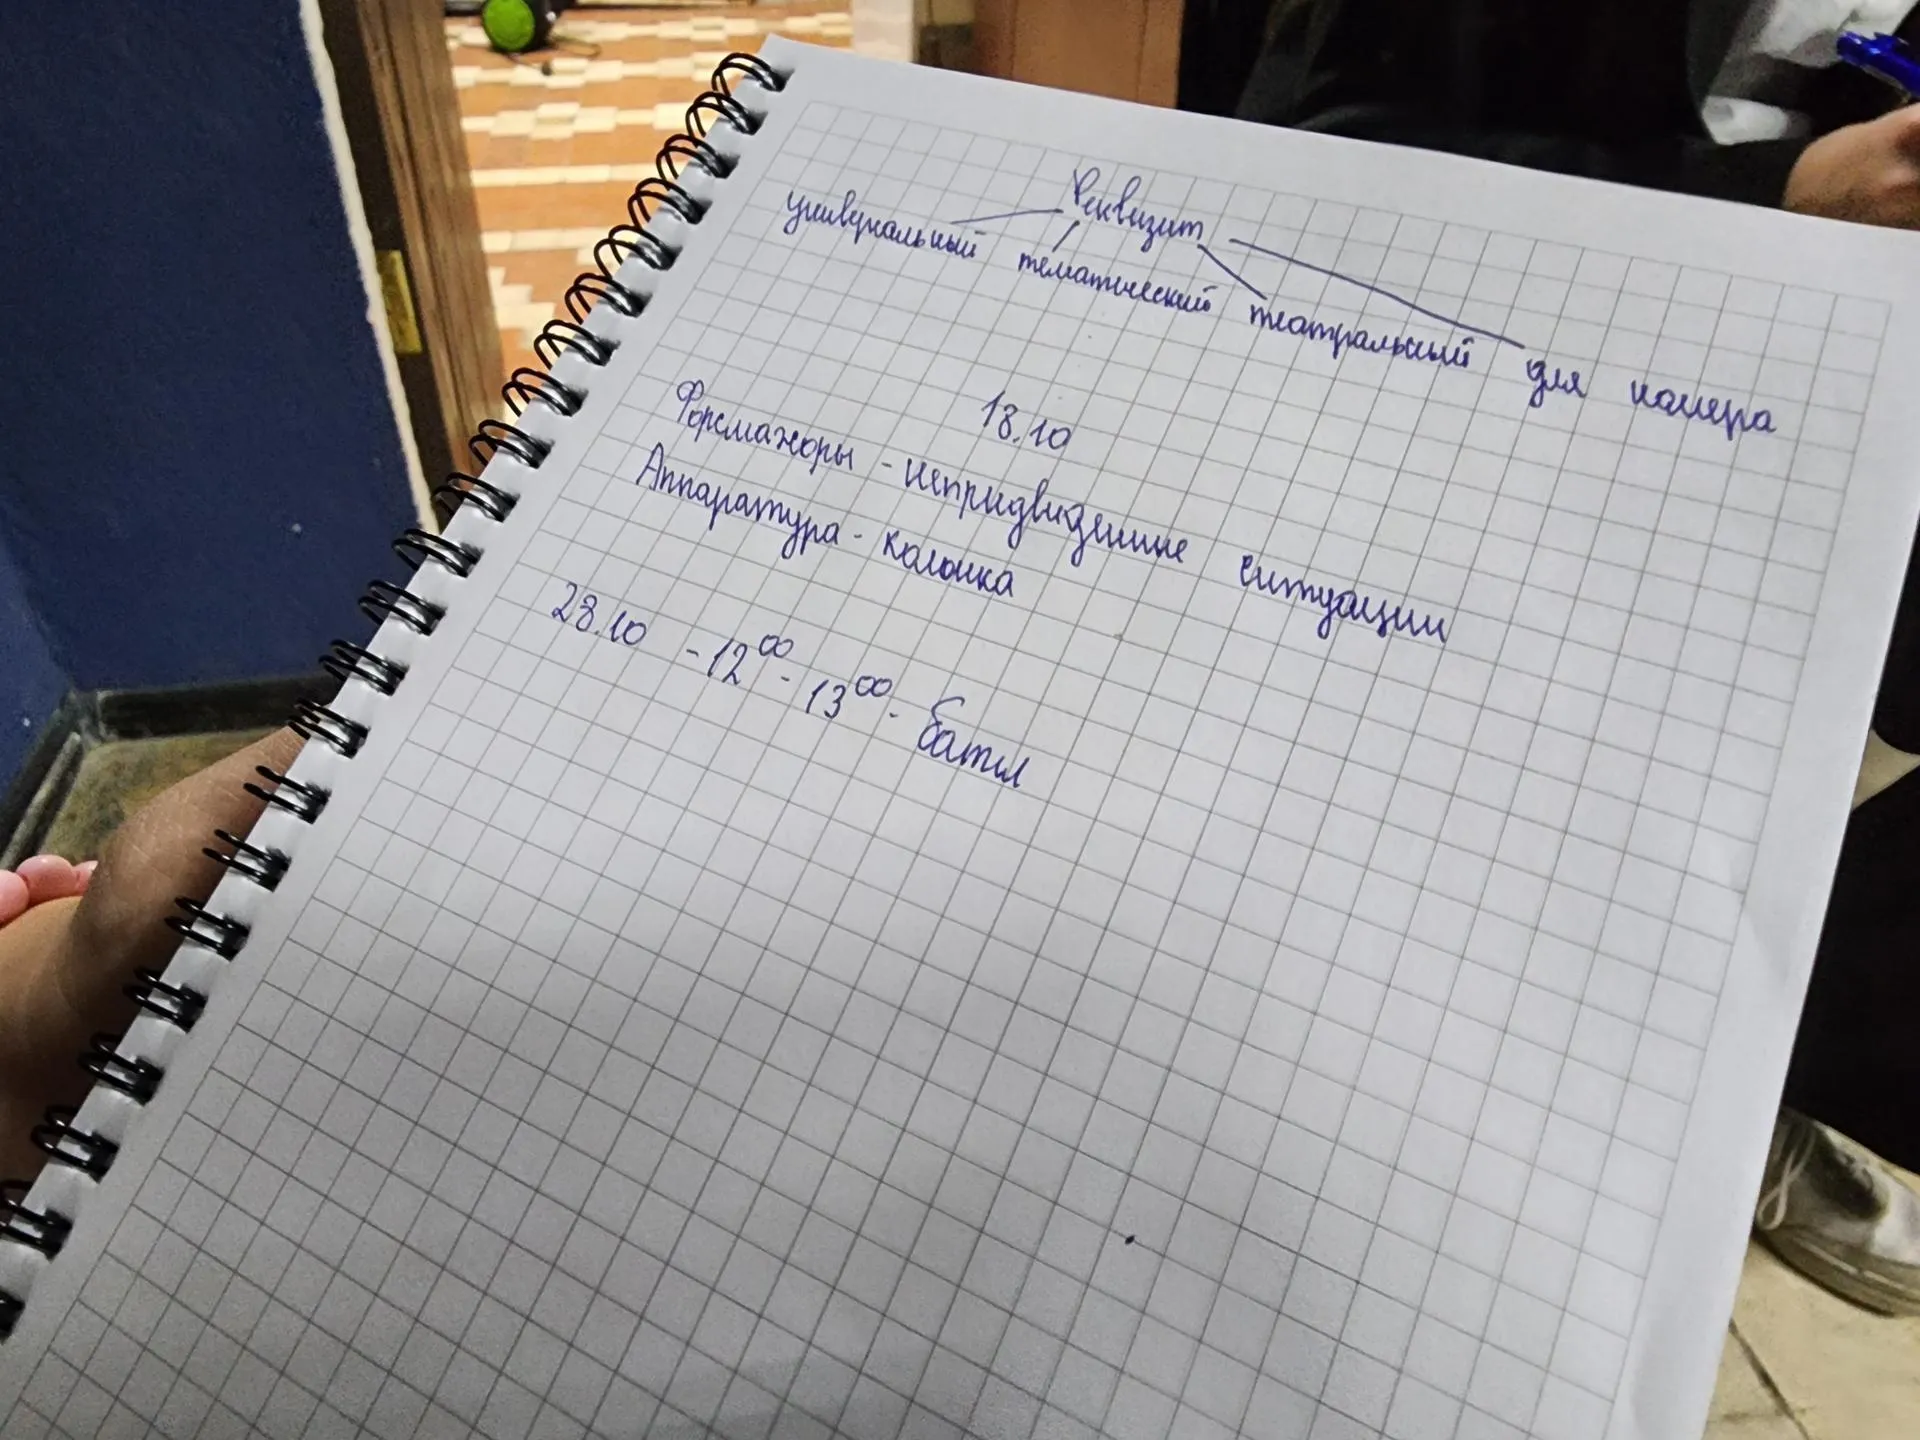 Реквизит
универсальный тематический театральный для номера
18.10
Форсмажоры - непридвиденные ситуации
Аппаратура - колонка
28.10 - 12⁰⁰ - 13⁰⁰ - батл